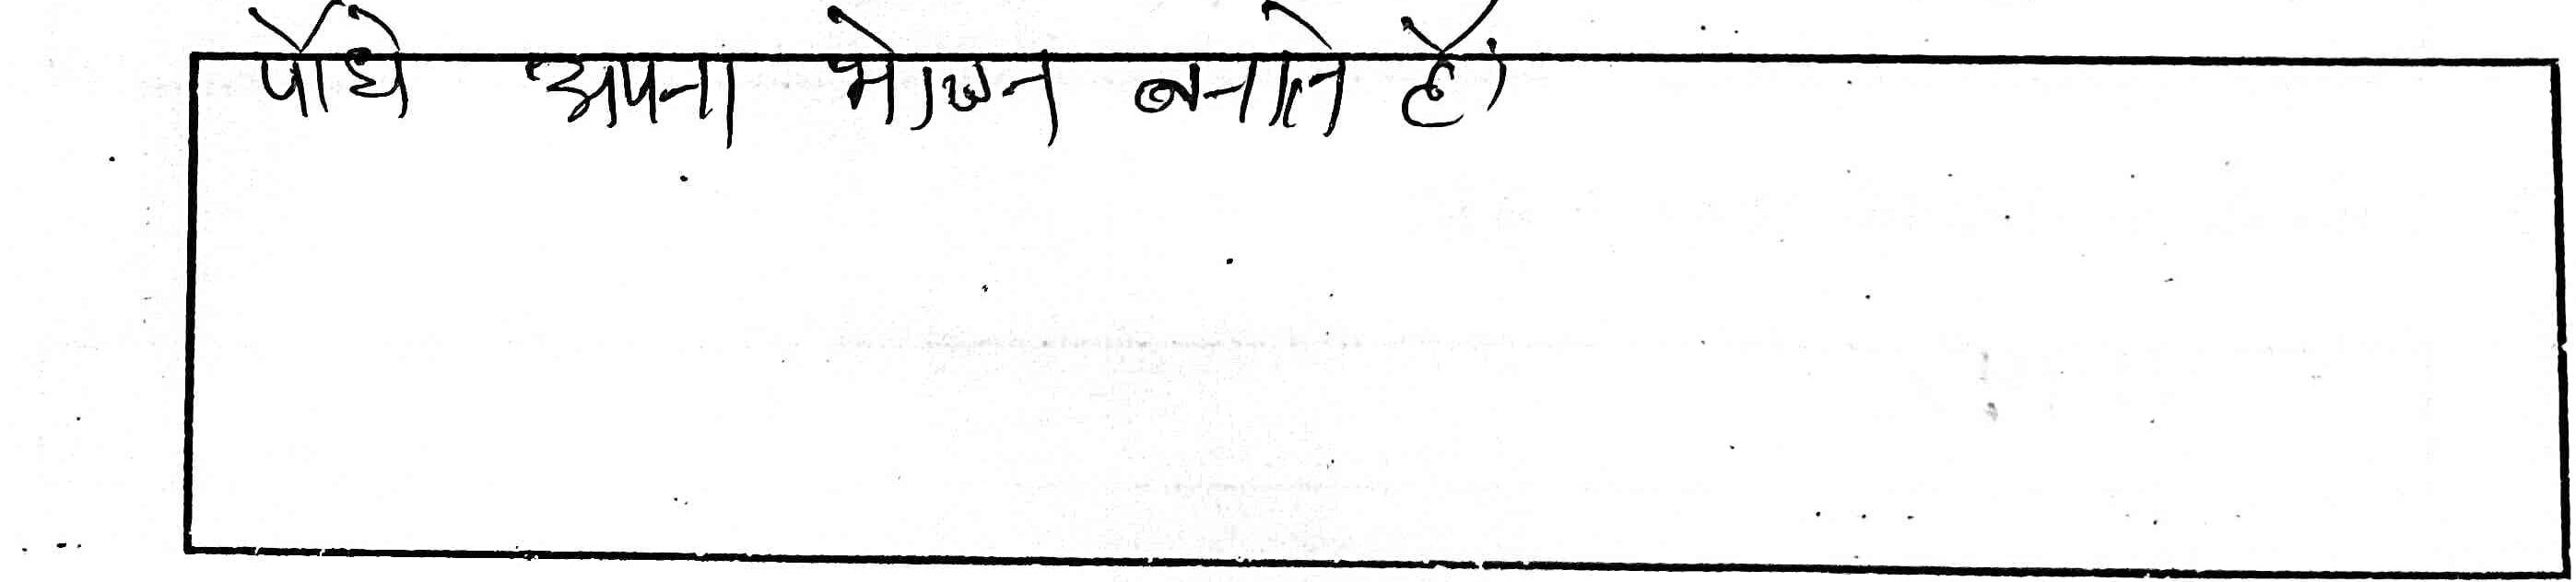 पौधे अपना भोजन बनाते हैं।